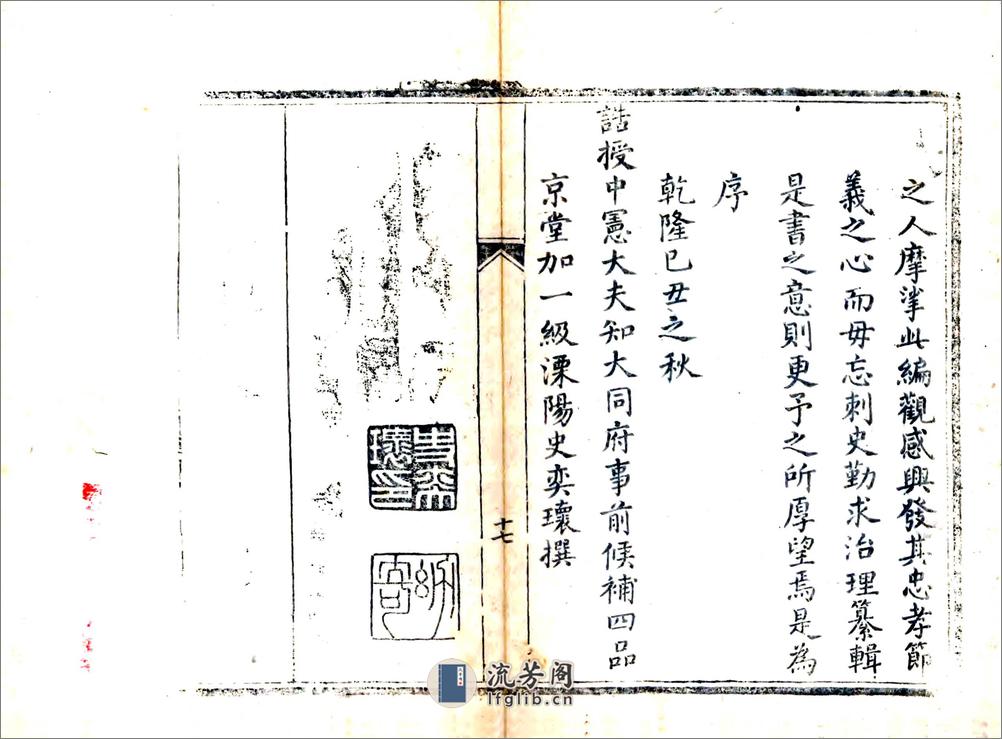 之人摩挲此編觀感興發其忠孝節
義之心而毋忘刺史勤求治理纂輯
是書之意則更予之所厚望焉是為
序
乾隆己丑之秋
誥授中憲大夫知大同府事前候補四品
京堂加一級溧陽史奕瓌撰
十七
史奕瓌印
流芳阁
lfglib.cn